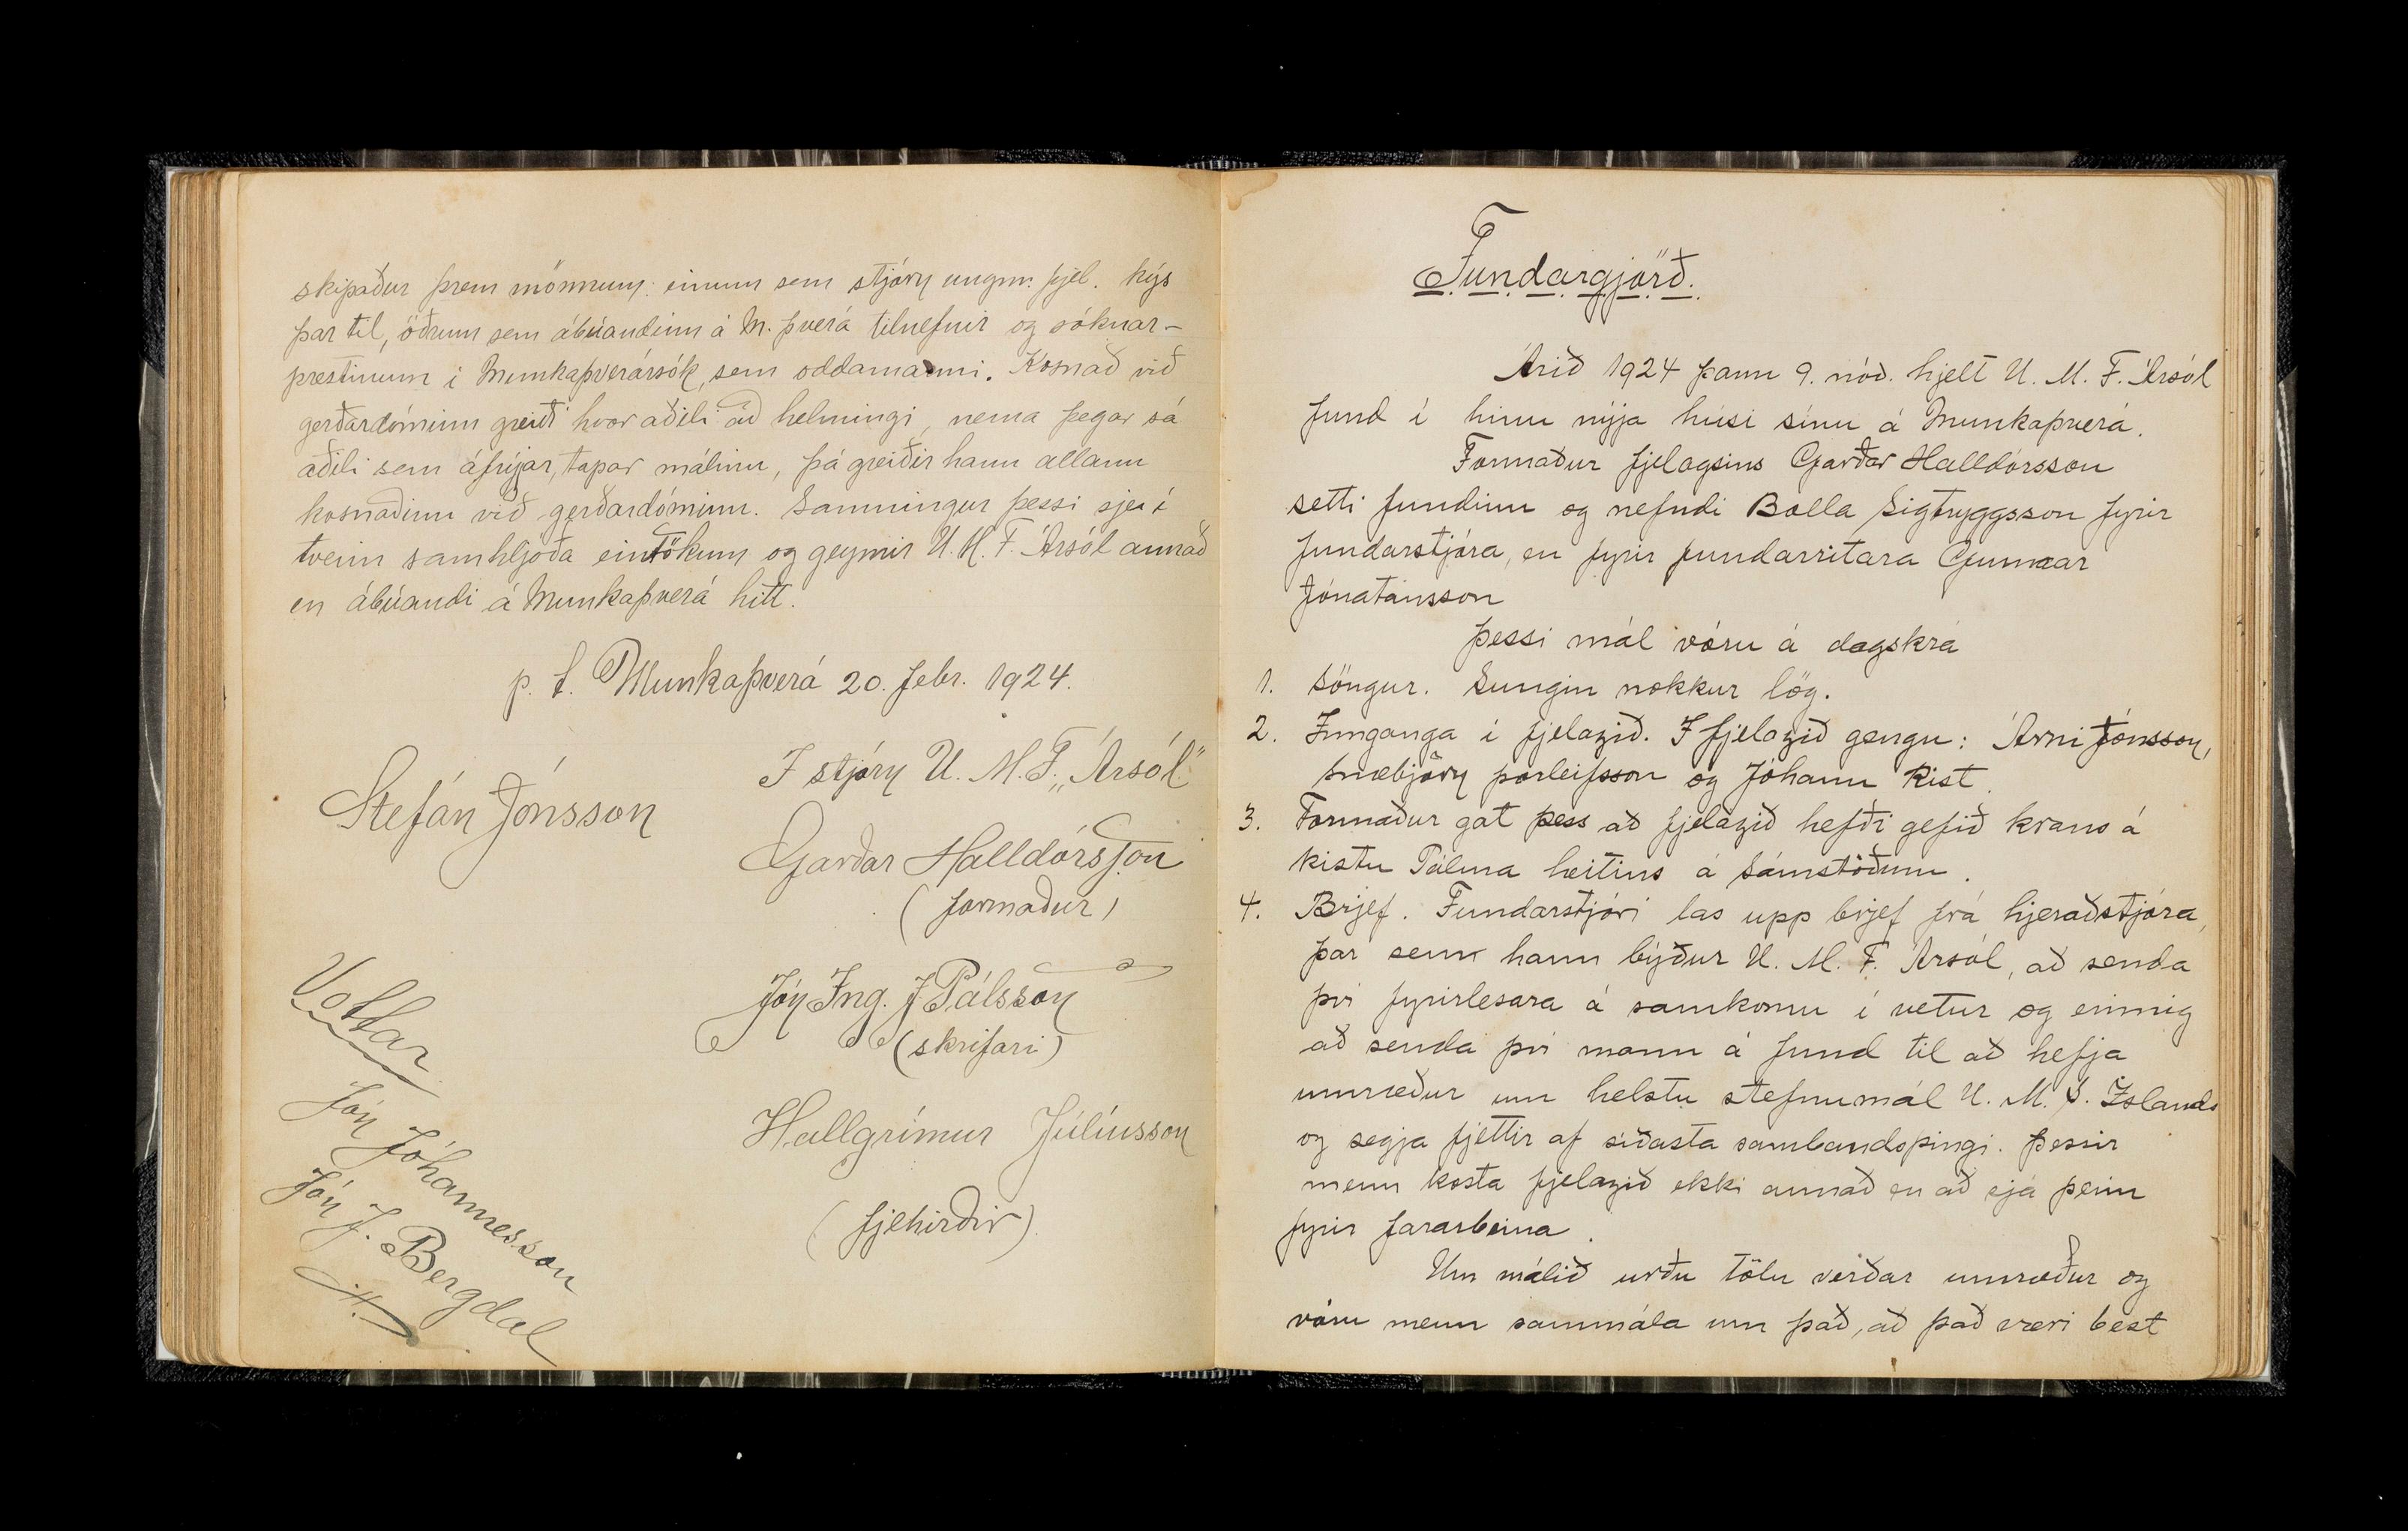 skipaður þrem mönnum: einum sem stjórn ungm. fjel. kýs
þar til, öðrum sem ábúandinn á M.þverá tilnefnir og sóknar-
prestinum í Munkaþverársók, sem oddamanni. Kosnað við
gerðardóminn greiði hvor aðili að helmingi, nema þegar sá
aðili sem áfrýjar, tapar málinu, þá greiðir hann allann
kosnaðinn við gerðardóminn. Samningur þessi sje í
tveim samhljóða eintökum og geymir U.M.F. Ársól annað
en ábúandi á Munkaþverá hitt.
p. t. Munkaþverá 20. febr. 1924.
Í stjórn U. M. F. „Ársól"
Stefán Jónsson
Garðar Halldórsson
(formaður)
Jón Ing. J. Pálsson
(skrifari)
Hallgrímur Júlíusson
(fjehirðir).
Vottar
Jón Jóhannesson
Jón J. Bergdal
Fundargjörð.
Árið 1924 þann 9. nóv. hjelt U. M. F. Ársól
fund í hinu nýja húsi sínu á Munkaþverá.
Formaður fjelagsins Garðar Halldórsson
setti fundinn og nefndi Bolla Sigtryggsson fyrir
fundarstjóra, en fyrir fundarritara Gunnar
Jónatansson
Þessi mál vóru á dagskrá
1. Söngur. Sungin nokkur lög.
2. Innganga í fjelagið. Í fjelagið gengu: Árni Jónsson,
Snæbjörn Þorleifsson og Jóhann Rist.
3. Formaður gat þess að fjelagið hefði gefið krans á
kistu Pálma heitins á Sámstöðum.
4. Brjef. Fundarstjóri las upp brjef frá hjeraðstjóra,
þar sem hann býður U. M. F. Ársól, að senda
því fyrirlesara á samkomu í vetur og einnig
að senda því mann á fund til að hefja
umræður um helstu stefnumál U. M. S. Íslands
og segja fjettir af síðasta sambandsþingi. Þessir
menn kosta fjelagið ekki annað en að sjá þeim
fyrir fararbeina.
Um málið urðu tölu verðar umræður og
vóru menn sammála um það, að það væri best